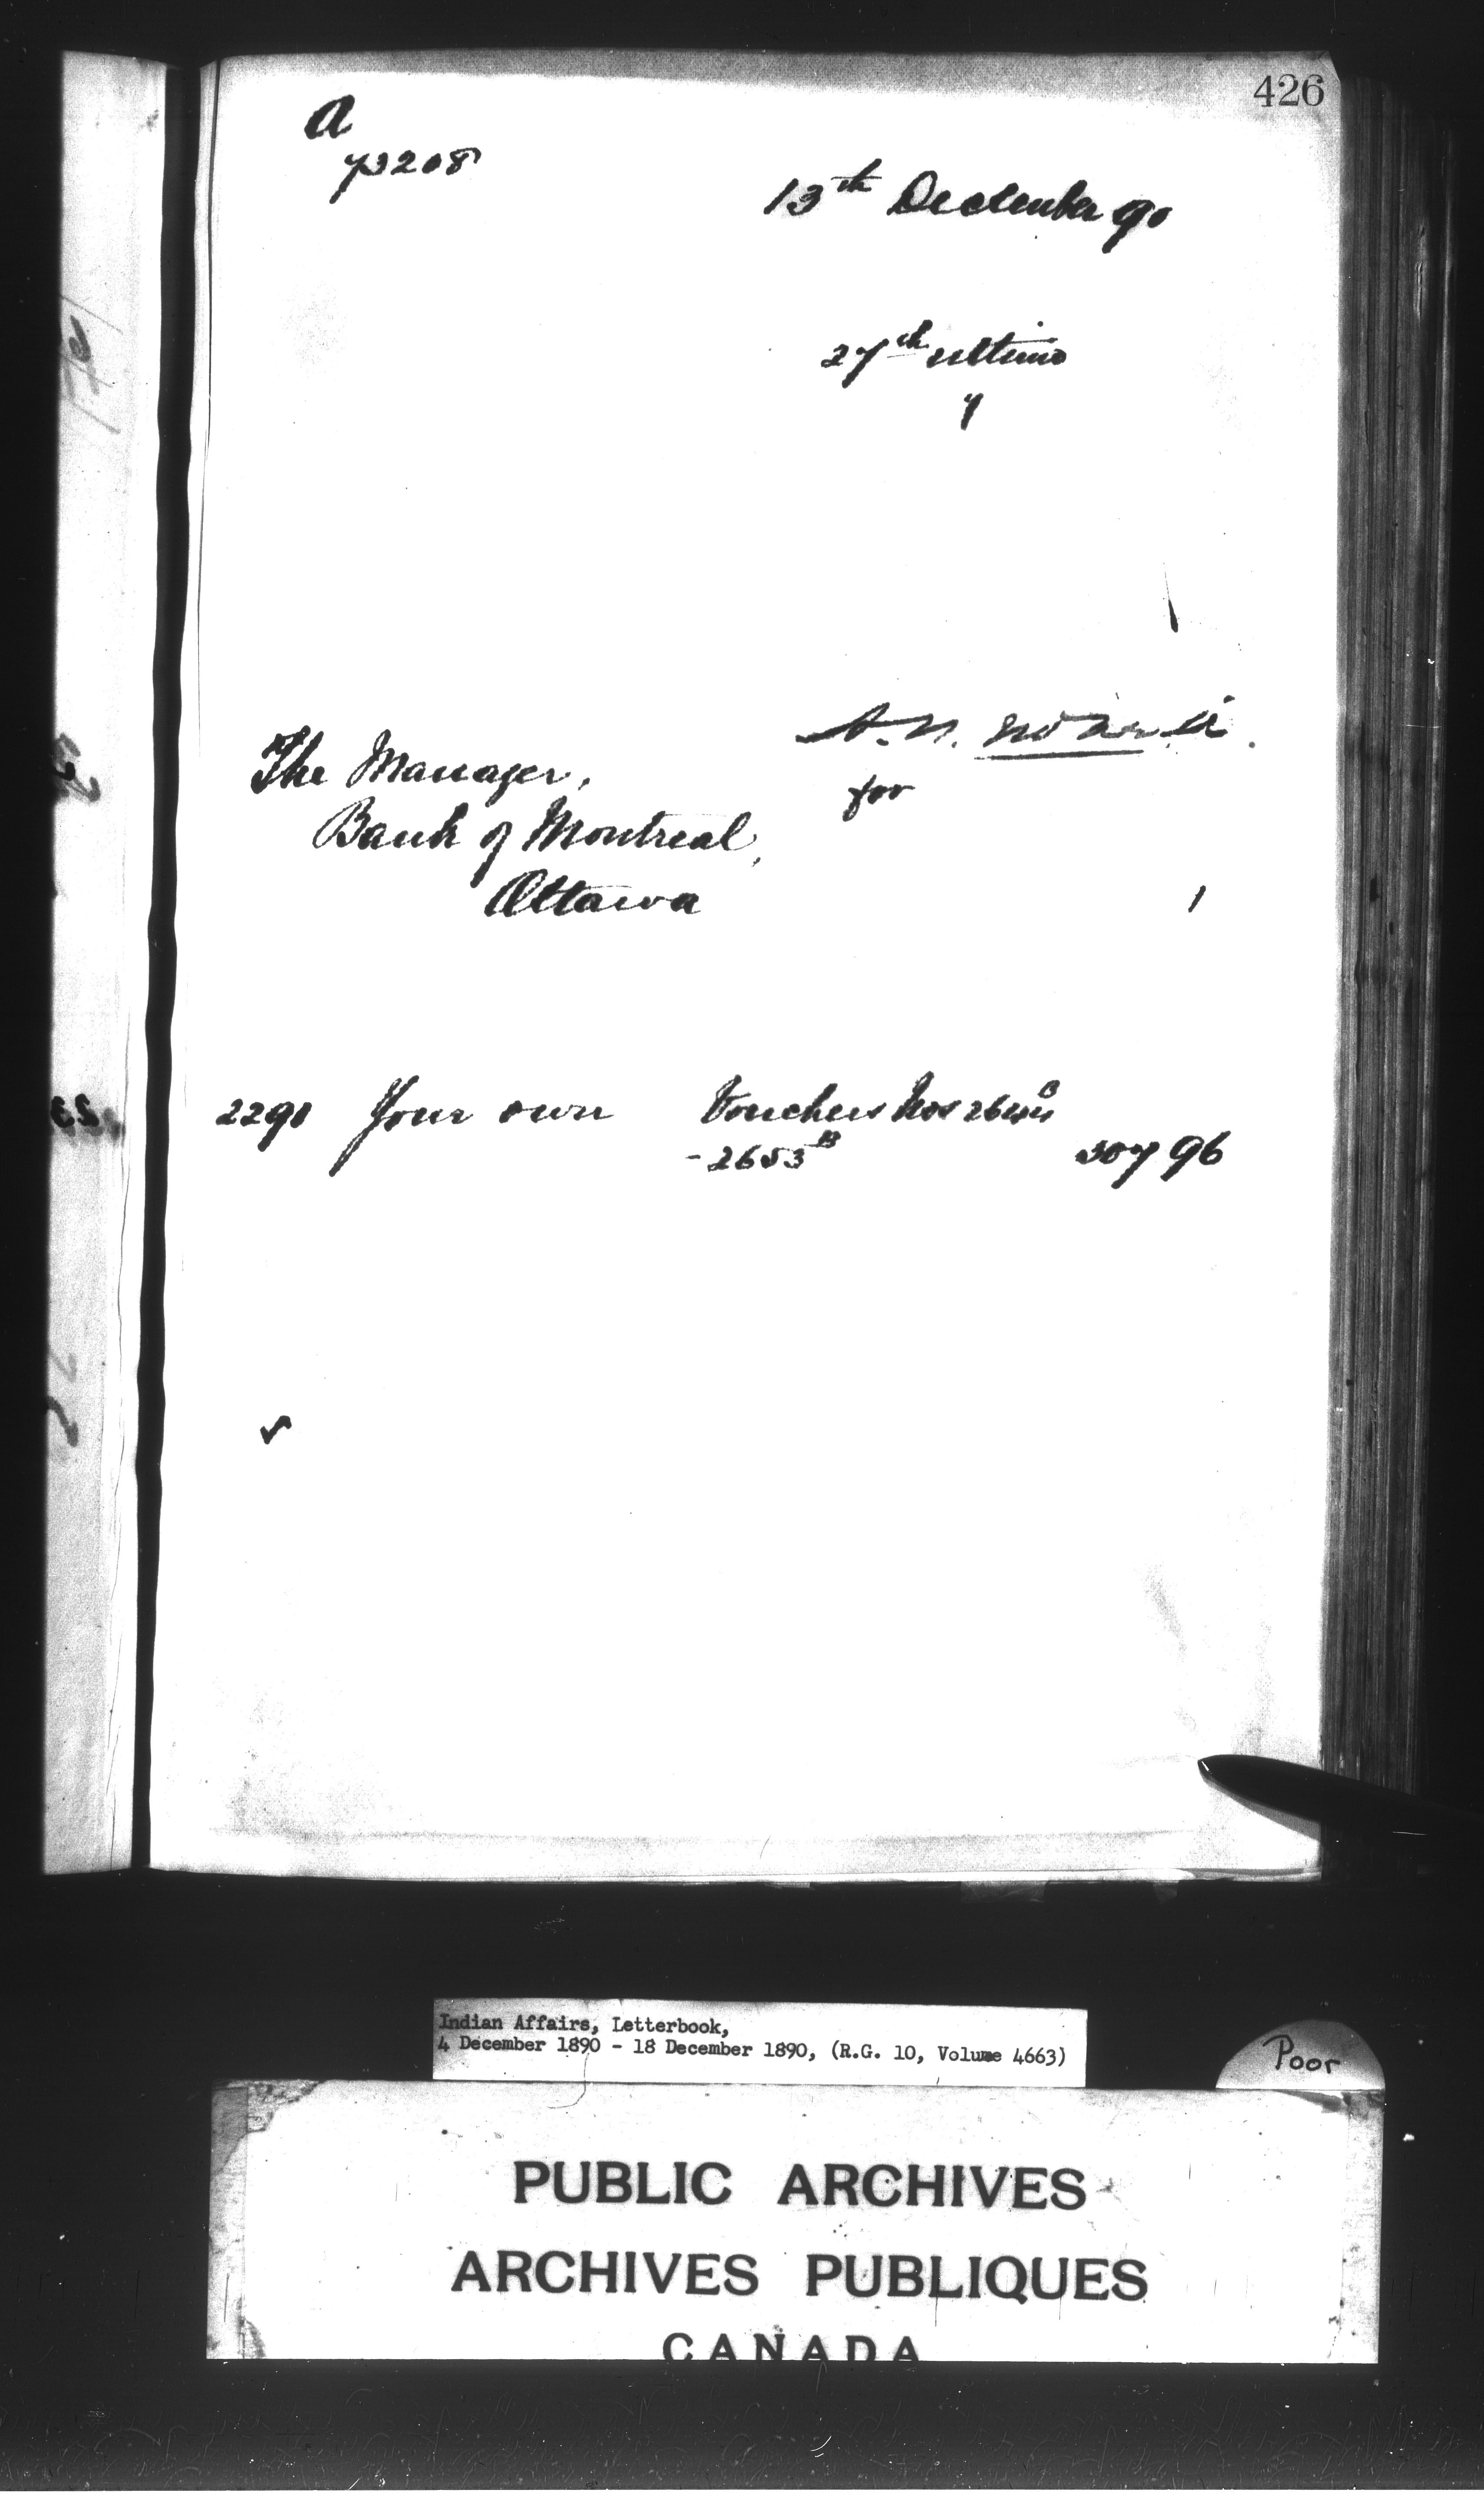 426
A
73208
13th December 90
27th ultimo
A. N.
for
The Manager,
Bank of Montreal,
Ottawa
1
2290 Your own Vouchers Nos
- 2653 B 307 96
Indian Affairs, Letterbook,
4 December 1890 - 18 December 1890, (R.G. 10, Volume 4663)
Poor
PUBLIC ARCHIVES
ARCHIVES PUBLIQUES
CANADA